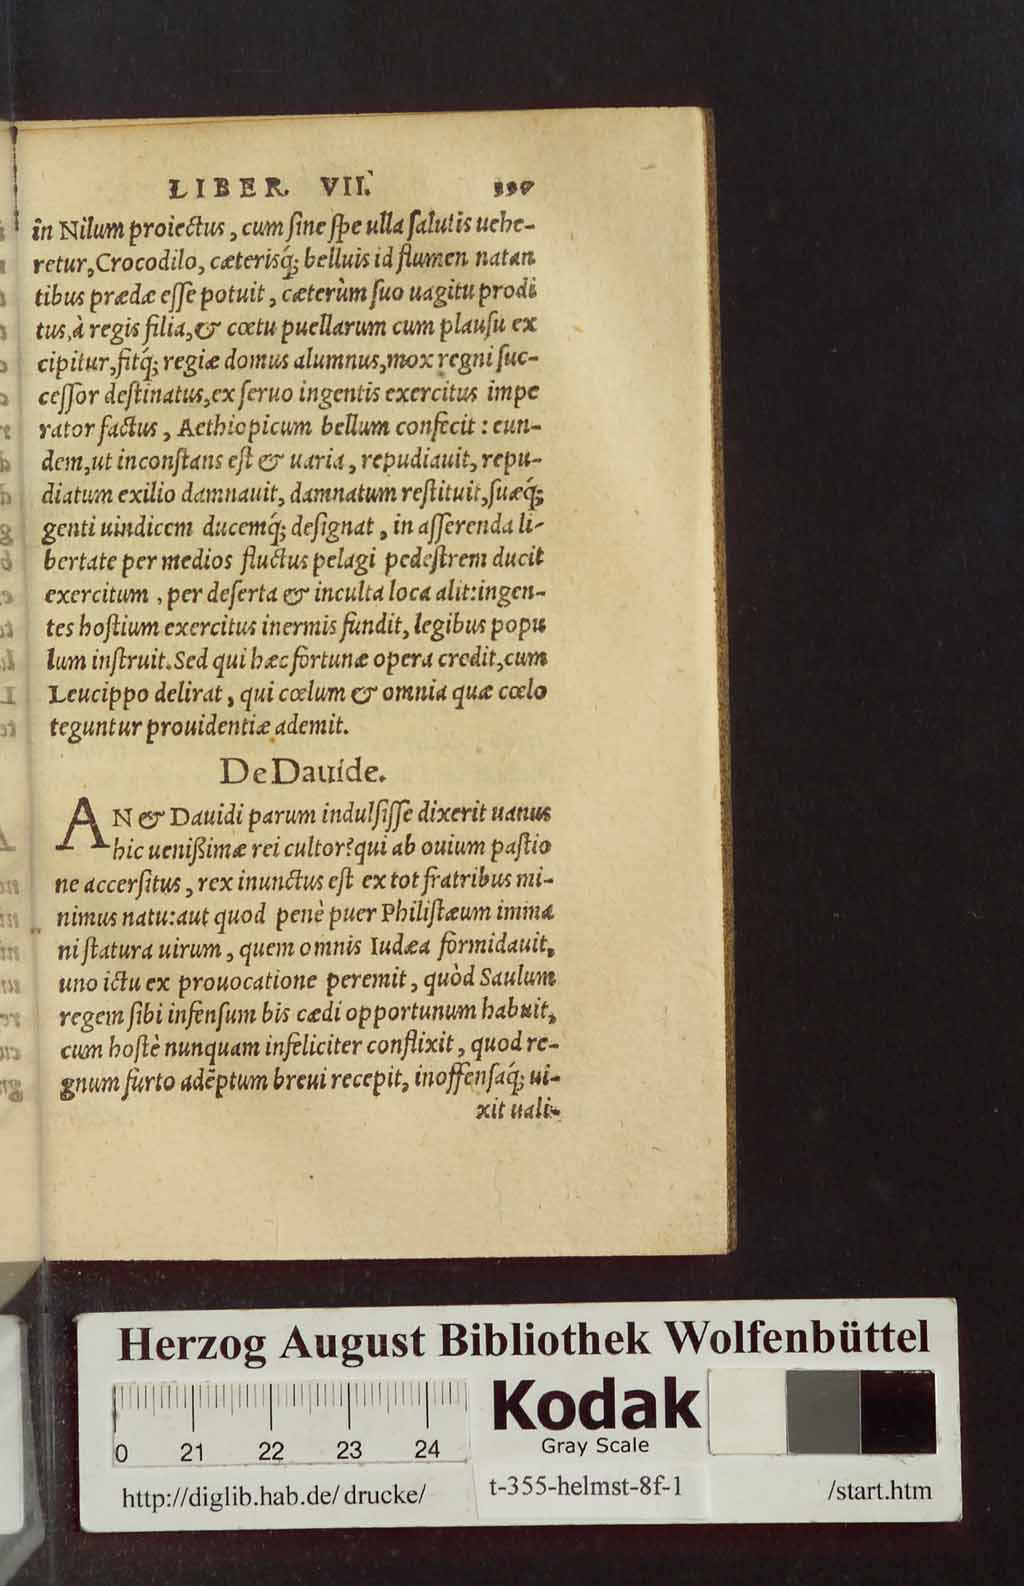 LIBER VII.
in Nilum proiectus, cum ſine ſpe ulla ſalutis uehe-
retur, Crocodilo, cæterisq́; belluis id flumen natan
tibus prædæ eſſe potuit, cæterùm ſuo uagitu prodi
tus, à regis filia, & cœtu puellarum cum plauſu ex
cipitur, fitq́; regiæ domus alumnus, mox regni ſuc-
ceſſor deſtinatus, ex ſeruo ingentis exercitus impe
rator factus, Aethiopicum bellum confecit: eun-
dem, ut inconſtans eſt & uaria, repudiauit, repu-
diatum exilio damnauit, damnatum reſtituit, ſuæq́;
genti uindicem ducemq́; deſignat, in aſſerenda li-
bertate per medios fluctus pelagi pedeſtrem ducit
exercitum, per deſerta & inculta loca alit: ingen-
tes hoſtium exercitus inermis fundit, legibus popu
lum inſtruit. Sed qui hæc fortunæ opera credit, cum
Leucippo delirat, qui cœlum & omnia quæ cœlo
teguntur prouidentiæ ademit.
De Dauide.
AN & Dauidi parum indulſiſſe dixerit uanus
hic uenißimæ rei cultor? qui ab ouium paſtio
ne accerſitus, rex inunctus eſt ex tot fratribus mi-
nimus natu: aut quod penè puer Philiſtæum imma
ni ſtatura uirum, quem omnis Iudæa formidauit,
uno ictu ex prouocatione peremit, quòd Saulum
regem ſibi infenſum bis cædi opportunum habuit,
cum hoſtè nunquam infeliciter conflixit, quod re-
gnum furto adẽptum breui recepit, inoffenſaq́; ui-
xit uali-
Herzog August Bibliothek Wolfenbüttel
0 21 22 23 24
Kodak
Gray Scale
http://diglib.hab.de/drucke/ t-355-helmst-8f-1 /start.htm